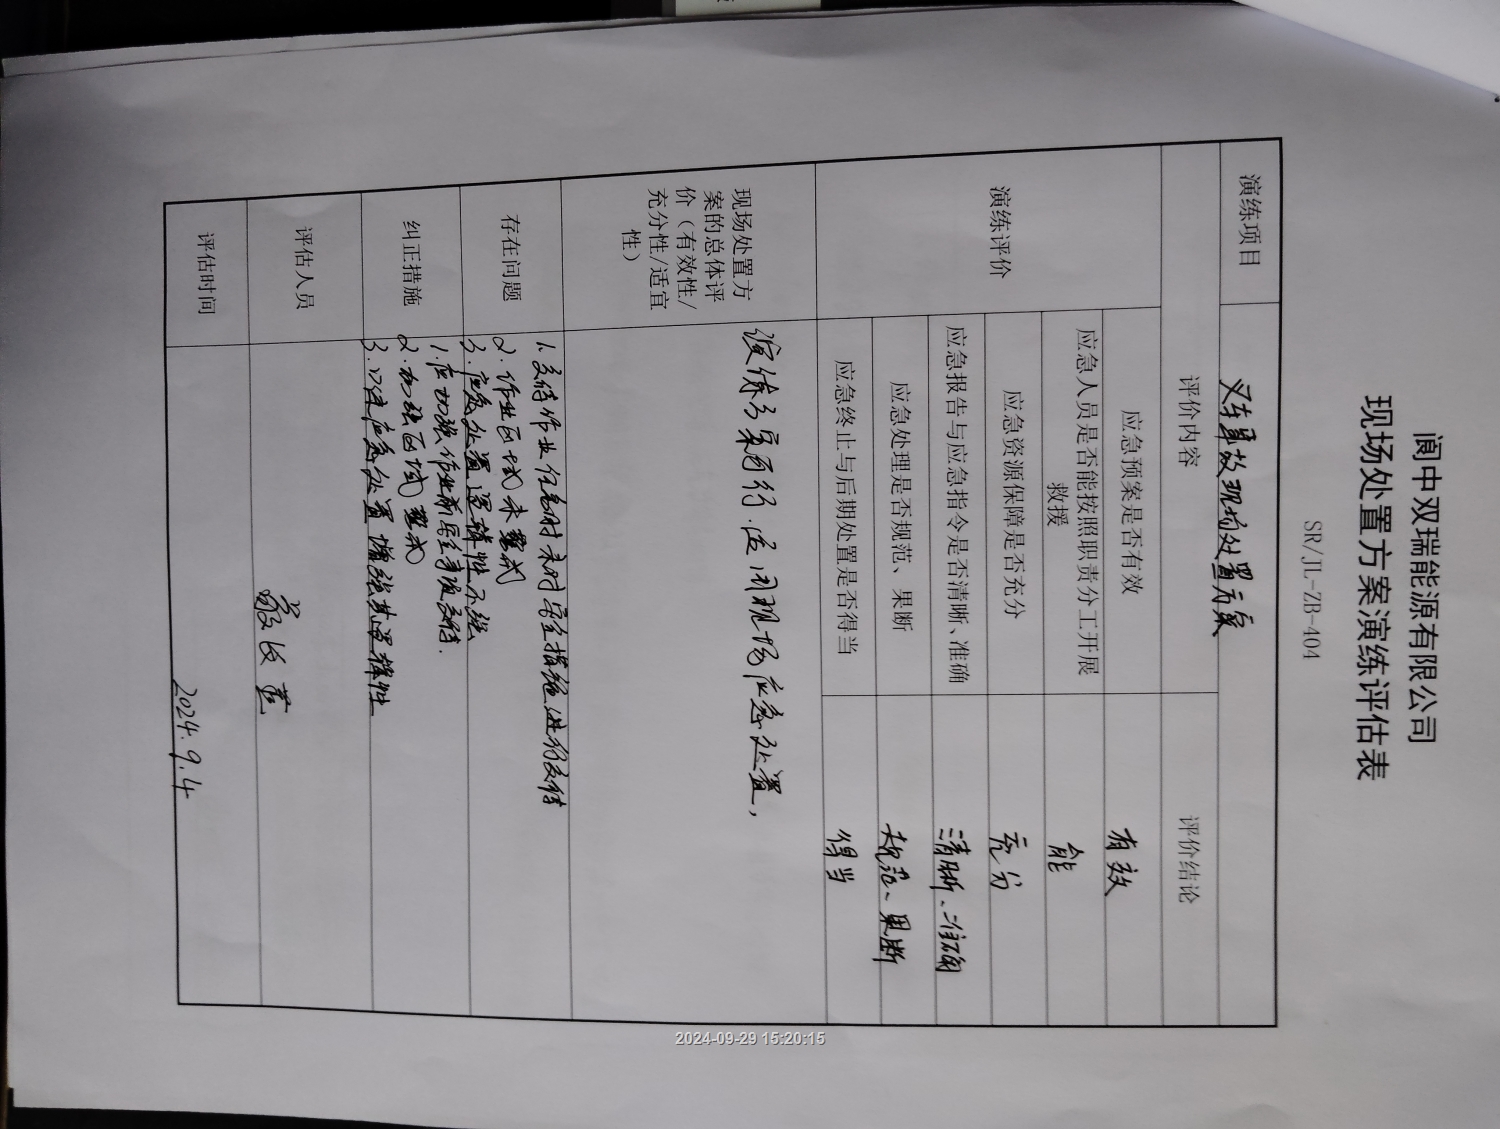 阆中双瑞能源有限公司
现场处置方案演练评估表
SR/JL-ZB-404
演练项目 叉车事故现场处置方案
评价内容 评价结论
演练评价
应急预案是否有效 有效
应急人员是否能按照职责分工开展
救援 能
应急资源保障是否充分 充分
应急报告与应急指令是否清晰、准确 清晰、准确
应急处理是否规范、果断 规范、果断
应急终止与后期处置是否得当 得当
现场处置方
案的总体评
价（有效性/
充分性/适宜
性）
演练方案可行.适用现场应急处置,
存在问题
1.交待作业任务时未对安全措施进行交待
2.作业区域未警戒
3.应急处置逻辑性不强
纠正措施
1.应加强作业前安全事项交待.
2.加强区域警戒
3.应急处置增强其逻辑性
评估人员
评估时间 2024.9.4
2024-09-29 15:20:15